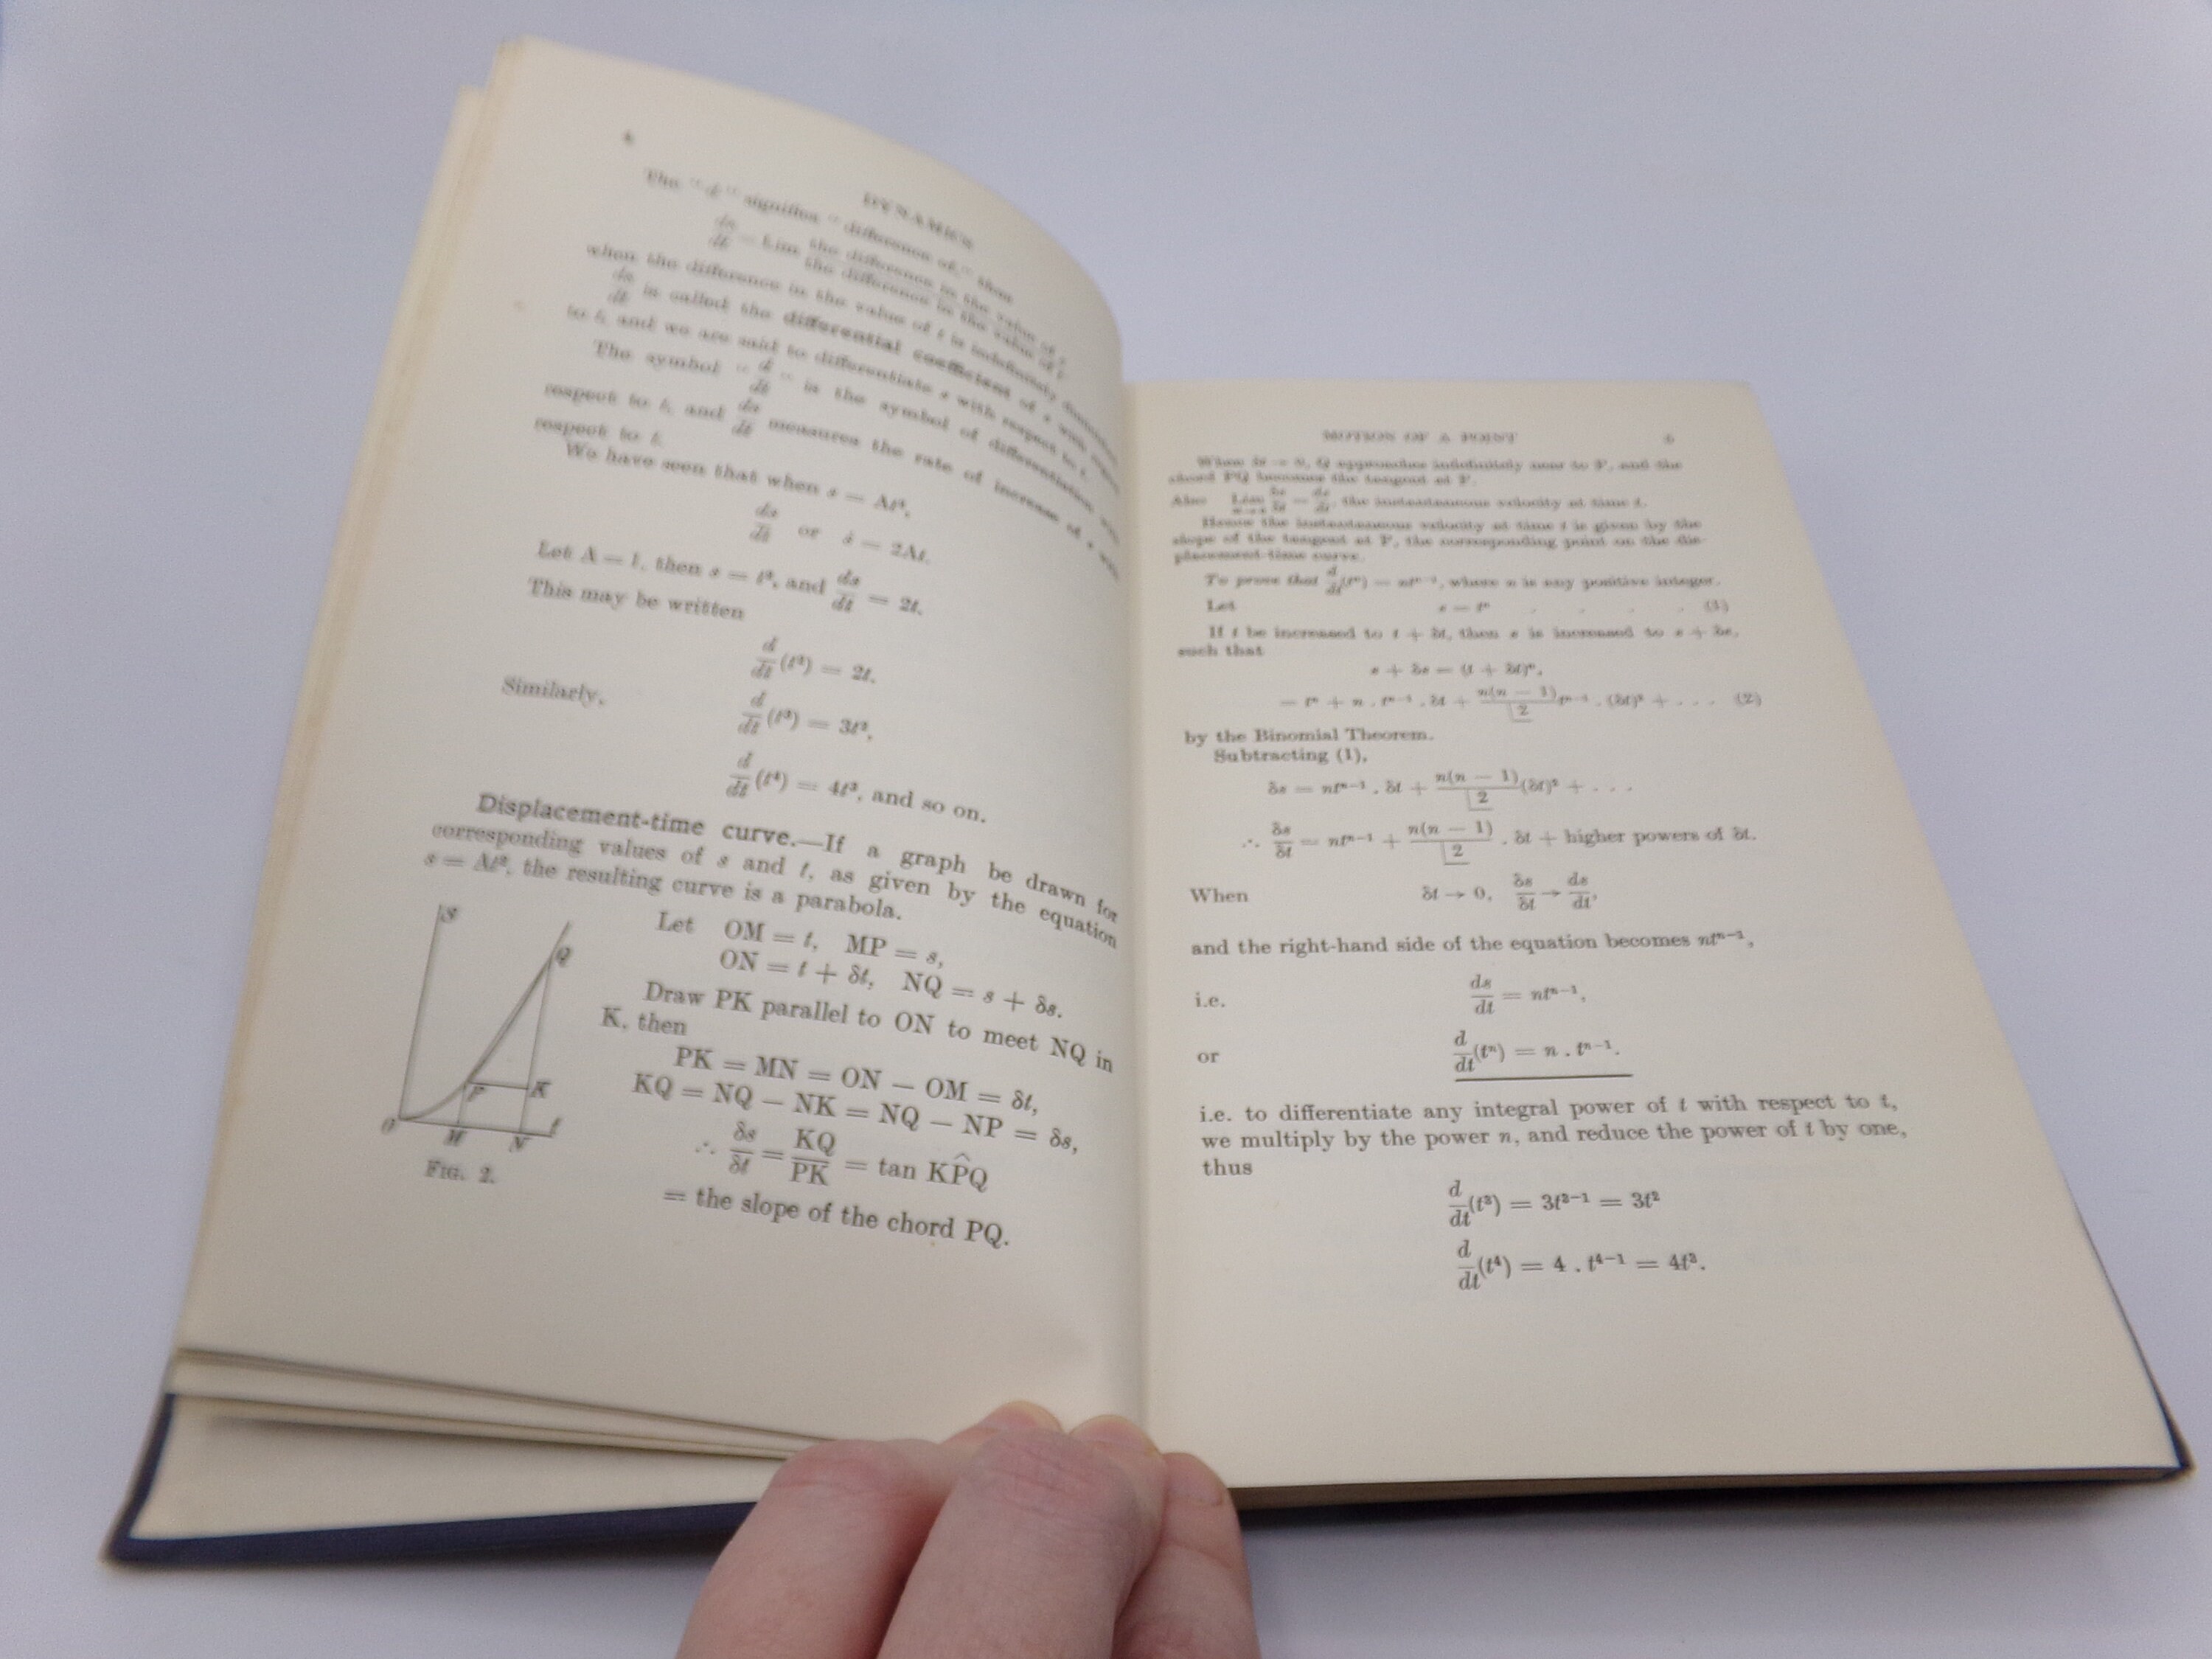 4
DYNAMICS
The "d" signifies "difference of," thus
ds/dt = Lim the difference in the value of s / the difference in the value of t
when the difference in the value of t is indefinitely
ds/dt is called the differential coefficient of s with
to t, and we are said to differentiate s with respect to t.
The symbol "d/dt" is the symbol of differentiation with
respect to t, and ds/dt measures the rate of increase of s with
respect to t.
We have seen that when s = At²,
ds/dt or ṡ = 2At.
Let A = 1, then s = t², and ds/dt = 2t.
This may be written
d/dt (t²) = 2t.
Similarly, d/dt (t³) = 3t²,
d/dt (t⁴) = 4t³, and so on.
Displacement-time curve.—If a graph be drawn for
corresponding values of s and t, as given by the equation
s = At², the resulting curve is a parabola.
Let OM = t, MP = s,
ON = t + δt, NQ = s + δs.
Draw PK parallel to ON to meet NQ in
K, then
PK = MN = ON − OM = δt,
KQ = NQ − NK = NQ − NP = δs,
∴ δs/δt = KQ/PK = tan KP̂Q
= the slope of the chord PQ.
S
Q
P
K
O
M
N
t
Fig. 2.
MOTION OF A POINT 5
When δt → 0, Q approaches indefinitely near to P, and the
chord PQ becomes the tangent at P.
Also Lim δs/δt = ds/dt, the instantaneous velocity at time t.
Hence the instantaneous velocity at time t is given by the
slope of the tangent at P, the corresponding point on the dis-
placement-time curve.
To prove that d/dt(tⁿ) = ntⁿ⁻¹, where n is any positive integer.
Let s = tⁿ . . . . (1)
If t be increased to t + δt, then s is increased to s + δs,
such that
s + δs = (t + δt)ⁿ,
= tⁿ + n . tⁿ⁻¹ . δt + n(n − 1)/|2 tⁿ⁻² . (δt)² + . . . (2)
by the Binomial Theorem.
Subtracting (1),
δs = ntⁿ⁻¹ . δt + n(n − 1)/|2 (δt)² + . . .
∴ δs/δt = ntⁿ⁻¹ + n(n − 1)/|2 . δt + higher powers of δt.
When δt → 0, δs/δt → ds/dt,
and the right-hand side of the equation becomes ntⁿ⁻¹,
i.e. ds/dt = ntⁿ⁻¹,
or d/dt(tⁿ) = n . tⁿ⁻¹.
i.e. to differentiate any integral power of t with respect to t,
we multiply by the power n, and reduce the power of t by one,
thus
d/dt(t³) = 3t³⁻¹ = 3t²
d/dt(t⁴) = 4 . t⁴⁻¹ = 4t³.